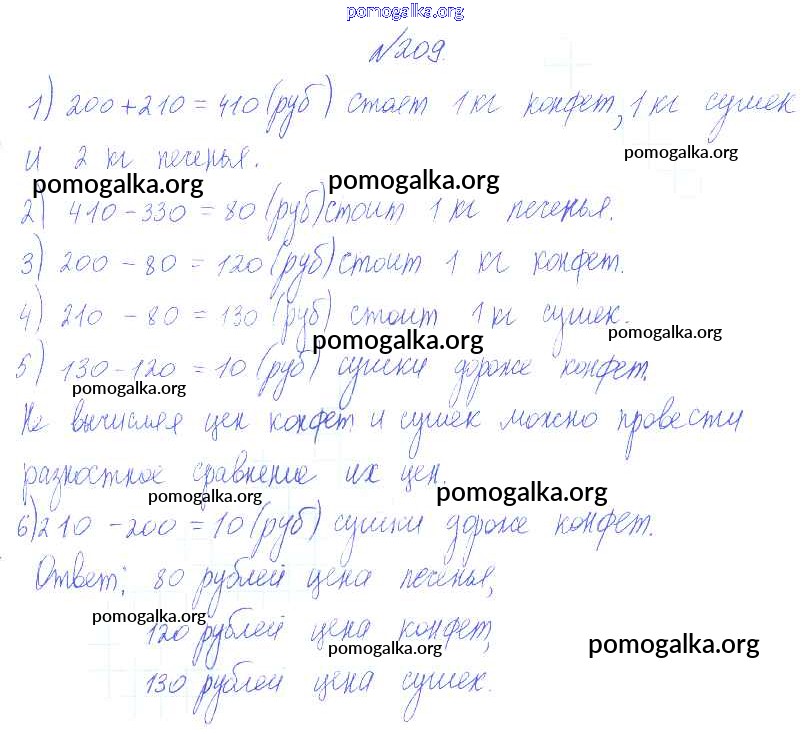 pomogalka.org
№209.
1) 200+210=410(руб) стоет 1кг конфет, 1кг сушек
pomogalka.org
и 2 кг печенья.
pomogalka.org pomogalka.org
2) 410-330=80(руб)стоит 1кг печенья.
3) 200-80=120(руб)стоит 1 кг конфет.
4) 210-80=130(руб) стоит 1кг сушек.
pomogalka.org pomogalka.org
5) 130-120=10(руб) сушки дороже конфет.
pomogalka.org
Не вычисляя цен конфет и сушек можно провести
разностное сравнение их цен.
pomogalka.org pomogalka.org
6)210-200=10(руб) сушки дороже конфет.
Ответ: 80 рублей цена печенья,
pomogalka.org
120 рублей цена конфет,
pomogalka.org pomogalka.org
130 рублей цена сушек.